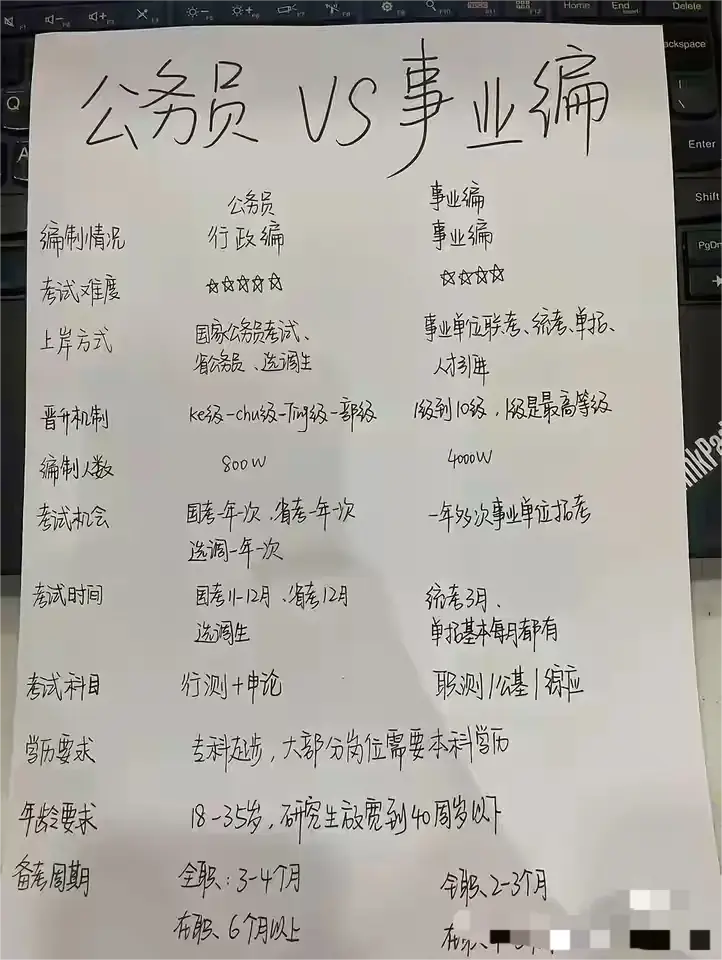 公务员 VS 事业编
公务员 事业编
编制情况 行政编 事业编
考试难度 ☆☆☆☆☆ ☆☆☆☆
上岸方式 国家公务员考试、 事业单位联考、统考、单招、
省公务员、选调生 人才引进
晋升机制 ke级-chu级-Ting级-部级 1级到10级，1级是最高等级
编制人数 800W 4000W
考试机会 国考一年一次、省考一年一次 一年多次事业单位招考
选调一年一次
考试时间 国考11-12月、省考12月 统考3月、
选调生 单招基本每月都有
考试科目 行测+申论 职测/公基/综应
学历要求 专科起步，大部分岗位需要本科学历
年龄要求 18-35岁，研究生放宽到40周岁以下
备考周期 全职：3-4个月 全职、2-3个月
在职、6个月以上
Q
A
Home
End
Insert
Delete
Backspace
Enter
Shift
PgDn